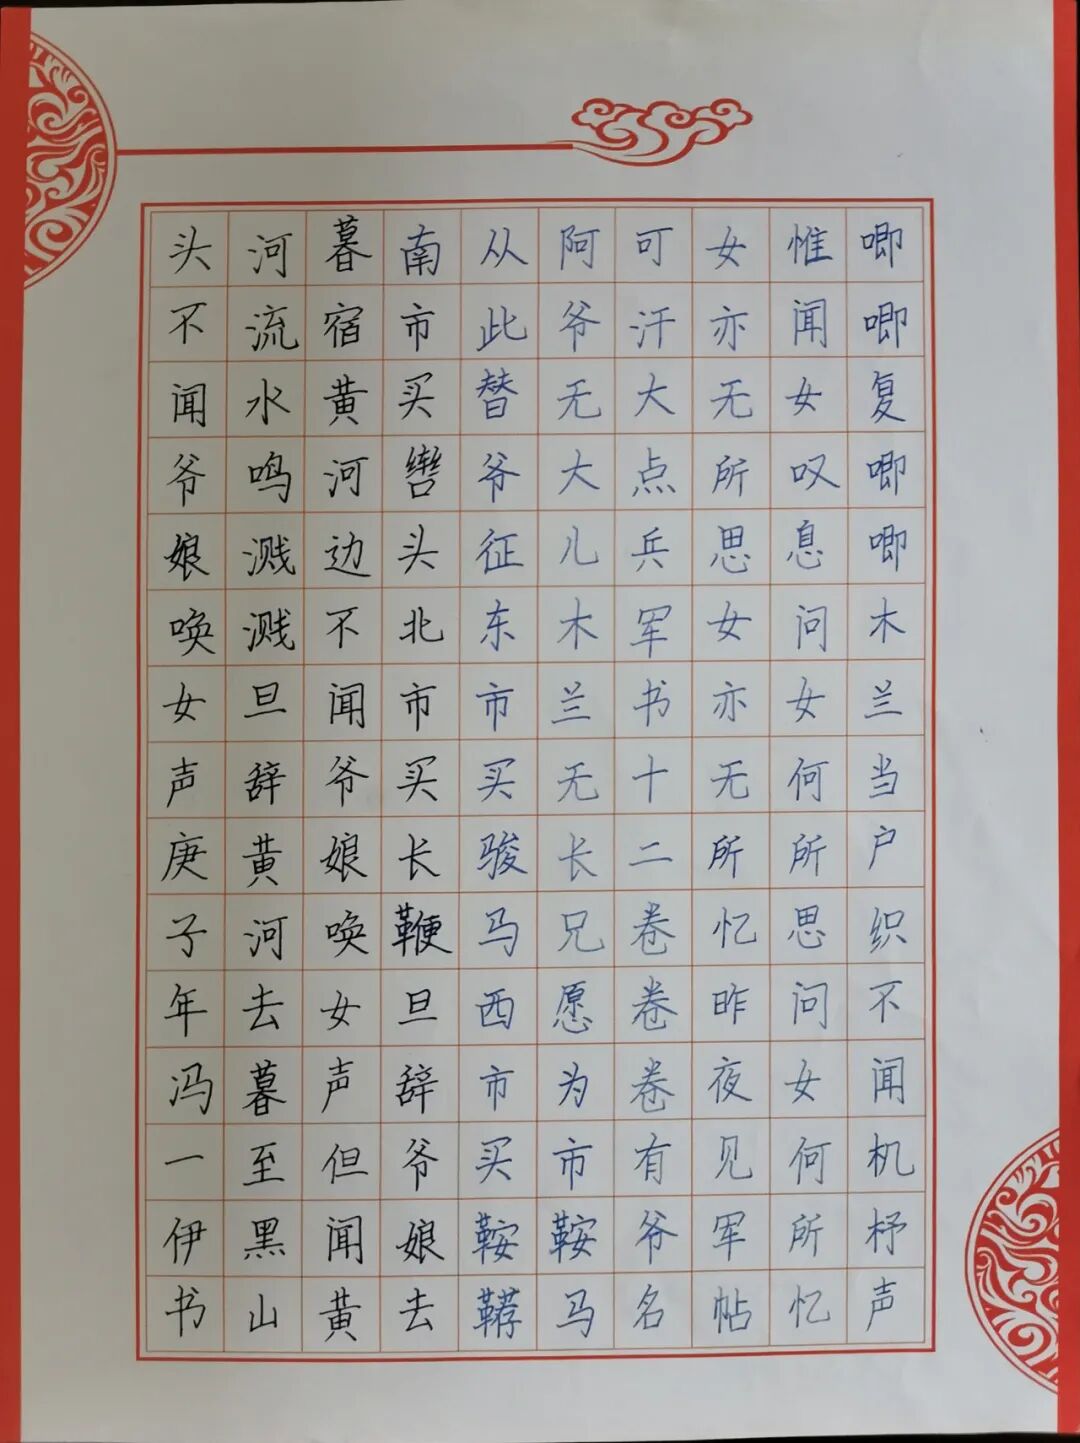 唧唧复唧唧木兰当户织不闻机杼声
惟闻女叹息问女何所思问女何所忆
女亦无所思女亦无所忆昨夜见军帖
可汗大点兵军书十二卷卷卷有爷名
阿爷无大儿木兰无长兄愿为市鞍马
从此替爷征东市买骏马西市买鞍鞯
南市买辔头北市买长鞭旦辞爷娘去
暮宿黄河边不闻爷娘唤女声但闻黄
河流水鸣溅溅旦辞黄河去暮至黑山
头不闻爷娘唤女声庚子年冯一伊书